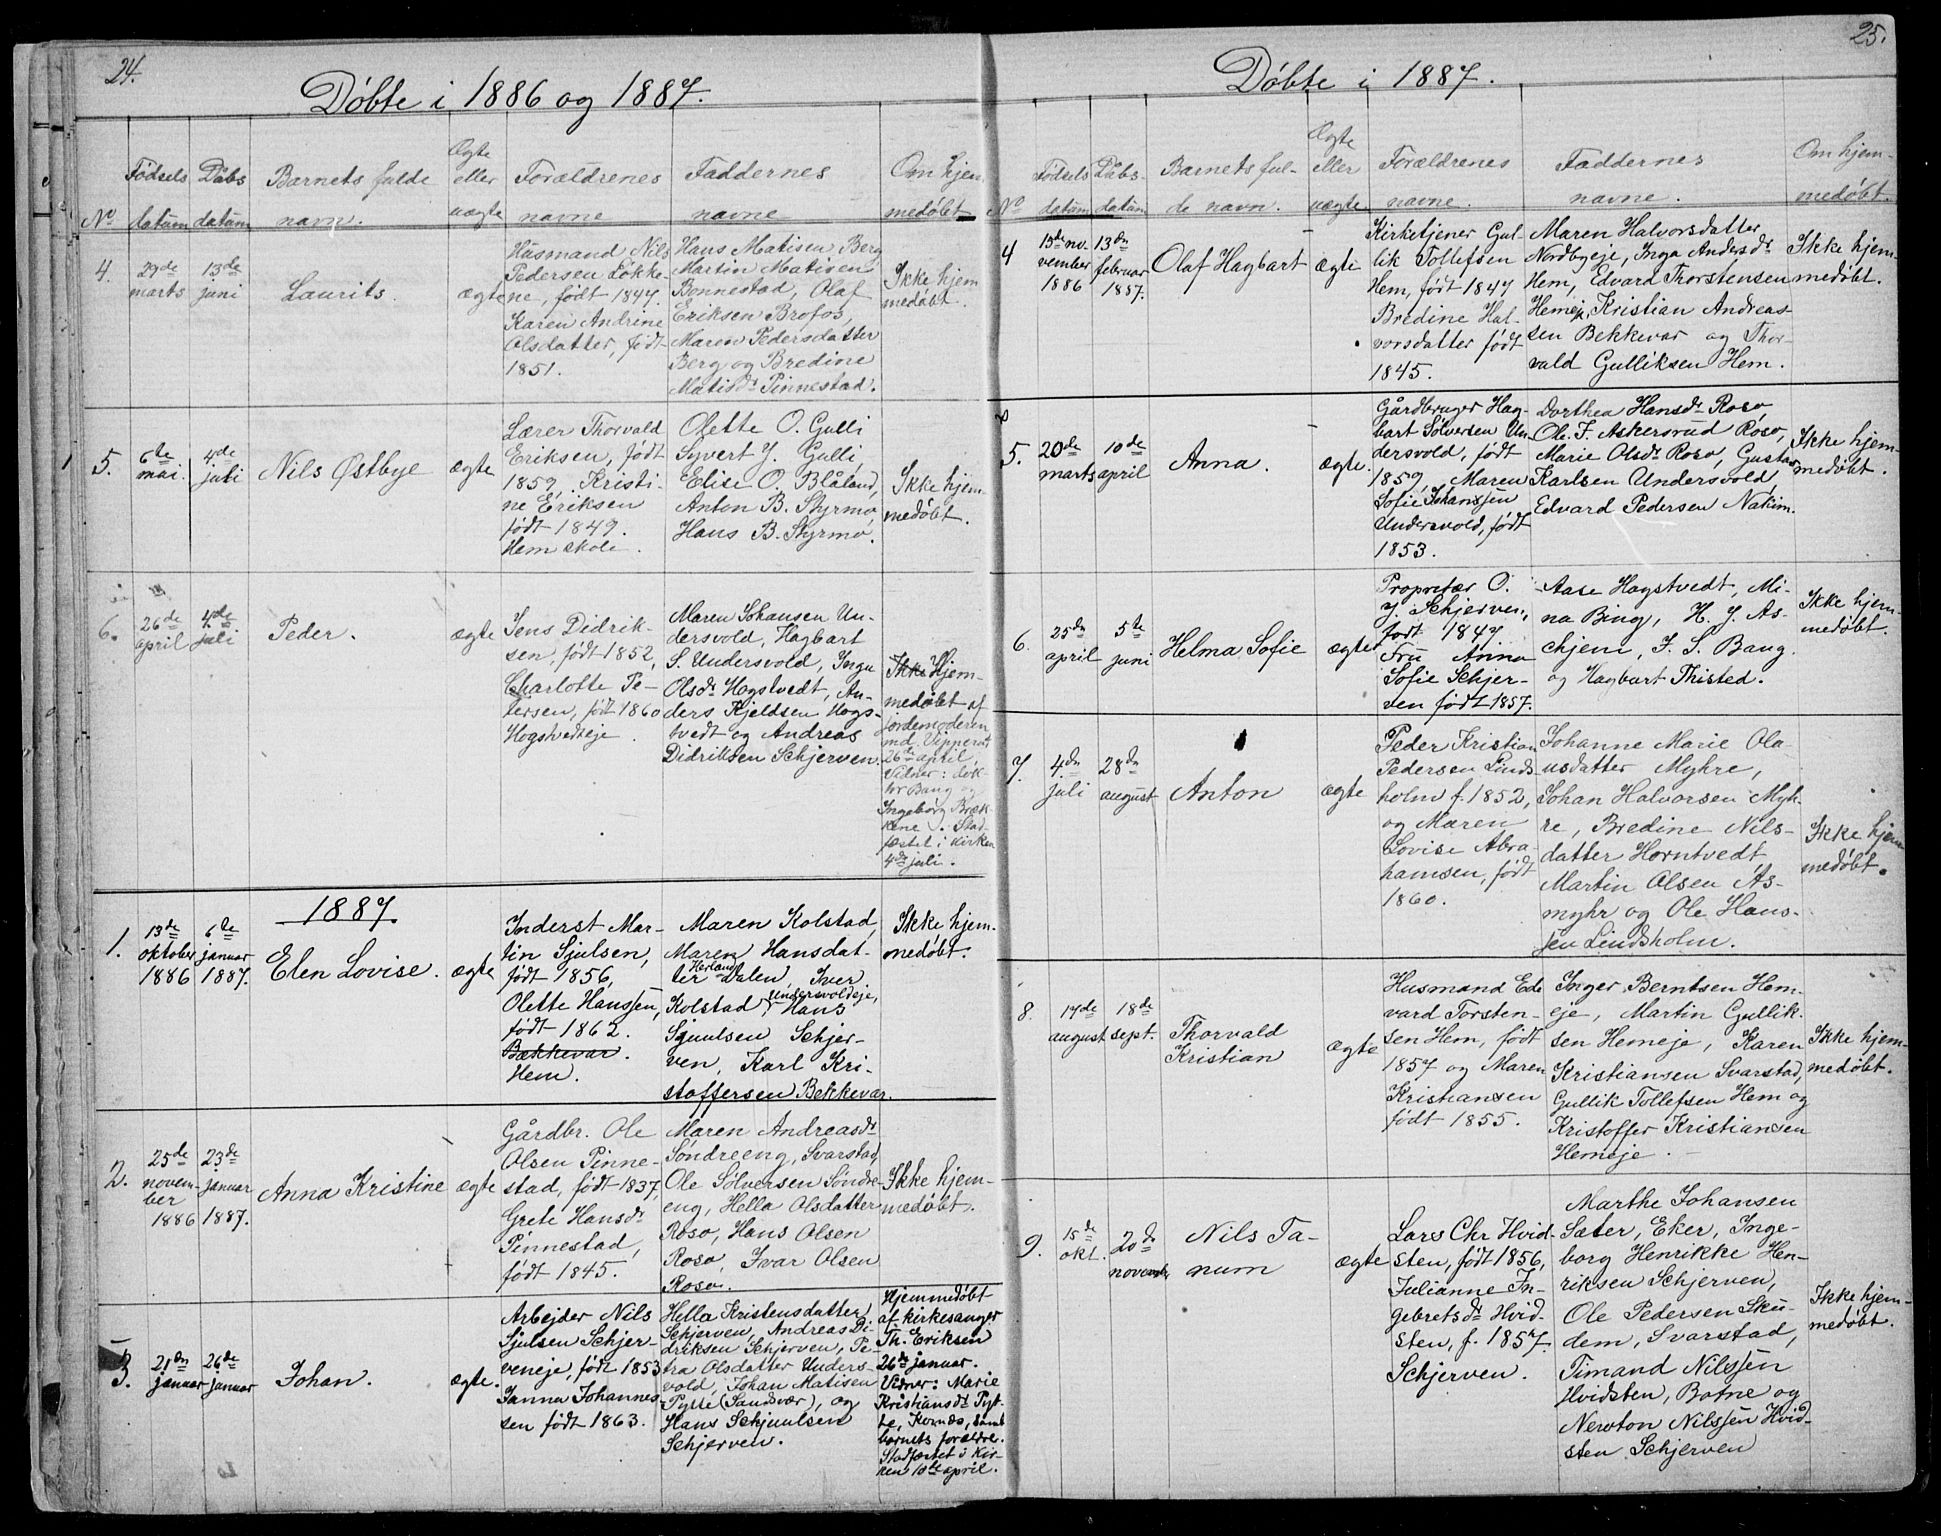 24.
Döbte i 1886 og 1887.
No
Fødsels
datum
Dåbs
datum
Barnets fulde
navn.
Ægte
eller
uægte
Forældrenes
navne
Faddernes
navne
Om hjem
medøbt
4.
29de
marts
13de
juni
Laurits.
ægte
Husmand Nils
Pedersen Løkke-
ne, født 1847.
Karen Andrine
Olsdatter, født
1851.
Hans Matisen Berg
Martin Matisen
Bonnestad, Olaf
Eriksen Brofos,
Maren Pedersdatter
Berg og Bredine
Matisdr Pinnestad.
Ikke hjem
medøbt.
5.
6te
mai.
4de
juli
Nils Østbye
ægte
Lærer Thorvald
Eriksen, født
1859. Kristi-
ne Eriksen
født 1849.
Hem skole.
Olette O. Gulli
Syvert J. Gulli,
Elise O. Blåland,
Anton B. Styrmo,
Hans B. Styrmo.
Ikke hjem-
medøbt.
6.
26de
april
4de
juli
Peder.
ægte
Jens Didrik-
sen, født 1852,
Charlotte Pe-
tersen, født 1860
Hogstvedteje.
Maren Johansen Un-
dersvold, Hagbart
S. Undersvold, Inga
Olsdr Hogstvedt, An-
ders Kjeldsen Hogs-
tvedt og Andreas
Didriksen Schjerven.
Ikke Hjem-
medøbt af
jordemoderen
md. Vipperud
26de april,
Vidner: dok-
tor Bang og
Ingeborg Bræk-
kene. Stad-
fæstet i kirken
4de juli.
1887.
1.
13de
oktober
1886
6te
januar
1887.
Elen Lovise.
ægte
Inderst Mar-
tin Sjulsen,
født 1856,
Olette Hanssen,
født 1862.
Bækkevar.
Hem.
Maren Kolstad,
Maren Hansdat-
Herland
ter Dalen, Iver
Undersvoldeje,
Kolstad, Hans
Sjuulsen Schjer-
ven, Karl Kri-
stoffersen Bekkevar.
Ikke hjem-
medøbt.
2.
25de
novem-
ber
1886
23de
januar
1887.
Anna Kristine
ægte
Gårdbr. Ole
Olsen Pinne-
stad, født 1837,
Grete Hansdr
Pinnestad,
født 1845.
Maren Andreasdr
Söndreeng, Svarstad,
Ole Sølversen Söndre-
eng, Hella Olsdatter
Roso, Hans Olsen
Roso, Ivar Olsen
Roso.
Ikke hjem-
medøbt.
3.
21dn
januar
26de
januar
Johan.
ægte.
Arbejder Nils
Sjulsen Schjer-
veneje, født 1853
Janna Johannes-
sen født 1863.
Hella Kristensdatter
Schjerven, Andreas Di-
driksen Schjerven, Pe-
tra Olsdatter Unders-
vold, Johan Matisen
Pytte (Sandsvær), og
Hans Schjuulsen
Schjerven.
Hjemmedøbt
af kirkesanger
Th. Eriksen
26de januar.
Vidner: Marie
Kristiansdr Pyt-
te, Komnæs, samt
barnets forældre.
Stadfæstet i kir-
ken 10de april.
25.
Döbte i 1887.
No
Fødsels
datum
Dåbs-
datum
Barnets ful-
de navn.
Ægte
eller
uægte
Forældrenes
navne.
Faddernes
navne.
Om hjem-
medøbt.
4
15de no-
vember
1886
13dn
februar
1887.
Olaf Hagbart
ægte
Kirketjener Gul-
lik Tollefsen
Hem, født 1847
Bredine Hal-
vorsdatter født
1845.
Maren Halvorsdatter
Nordbyeje, Inga Andersdr
Hem, Edvard Thorstensen
Hemeje, Kristian Andreas-
sen Bekkevar og Thor-
vald Gulliksen Hem.
Ikke hjem-
medøbt.
5.
20de
marts
10de
april
Anna.
ægte.
Gårdbruger Hag-
bart Sølversen Un-
dersvold, født
1859, Maren
Sofie Johanssen
Undersvold, født
1853.
Dorthea Hansdr Roso,
Ole F. Askersrud Roso,
Marie Olsdr Roso, Gustav
Karlsen Undersvold,
Edvard Pedersen Nakim.
Ikke hjem-
medøbt.
6.
25dn
april
5te
juni
Helma Sofie
ægte
Proprietær O.
J. Schjerven,
født 1847
Fru Anna
Sofie Schjer-
ven født 1857.
Aase Hogstvedt, Mi-
na Bing, H. J. As-
chjem, J. S. Bang.
og Hagbart Thisted.
Ikke hjem-
medøbt.
7.
4dn
juli
28dn
august
Anton
ægte
Peder Kristian
Pedersen Linds-
holm f. 1852,
og Maren
Lovise Abra-
hamsen, født
1860.
Johanne Marie Ola-
usdatter Myhre,
Johan Halvorsen Myh-
re, Bredine Nils-
datter Horntvedt,
Martin Olsen As-
myhr og Ole Hans-
sen Lindsholm.
Ikke hjem
medøbt.
8.
14de
august
18de
sept.
Thorvald
Kristian
ægte
Husmand Ed-
vard Torsten-
sen Hem, født
1857 og Maren
Kristiansen
født 1855.
Inger Berntsen Hem-
eje, Martin Gullik-
sen Hemeje, Karen
Kristiansen Svarstad,
Gullik Tollefsen Hem og
Kristoffer Kristiansen
Hemeje.
Ikke hjem-
medøbt.
9.
15de
okt.
20de
november
Nils Ta-
num
ægte
Lars Chr Hvid-
sten, født 1856,
Julianne In-
gebretsdr Hvid-
sten, f. 1857.
Schjerven.
Marthe Johansen
Sæter, Eker, Inge-
borg Henrikke Hen-
riksen Schjerven,
Ole Pedersen Sku-
dem, Svarstad,
Timand Nilssen
Hvidsten, Botne og
Newton Nilssen Hvid-
sten Schjerven
Ikke hjem-
medøbt.